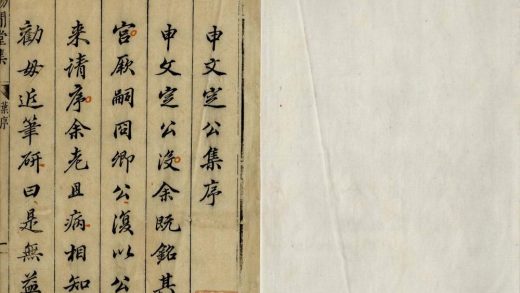 申文定公集序
申文定公沒余既銘其
宮厥嗣冏卿公復以公
来請序余老且病相知
勸毋近筆研曰是無益
閒堂集
葉序